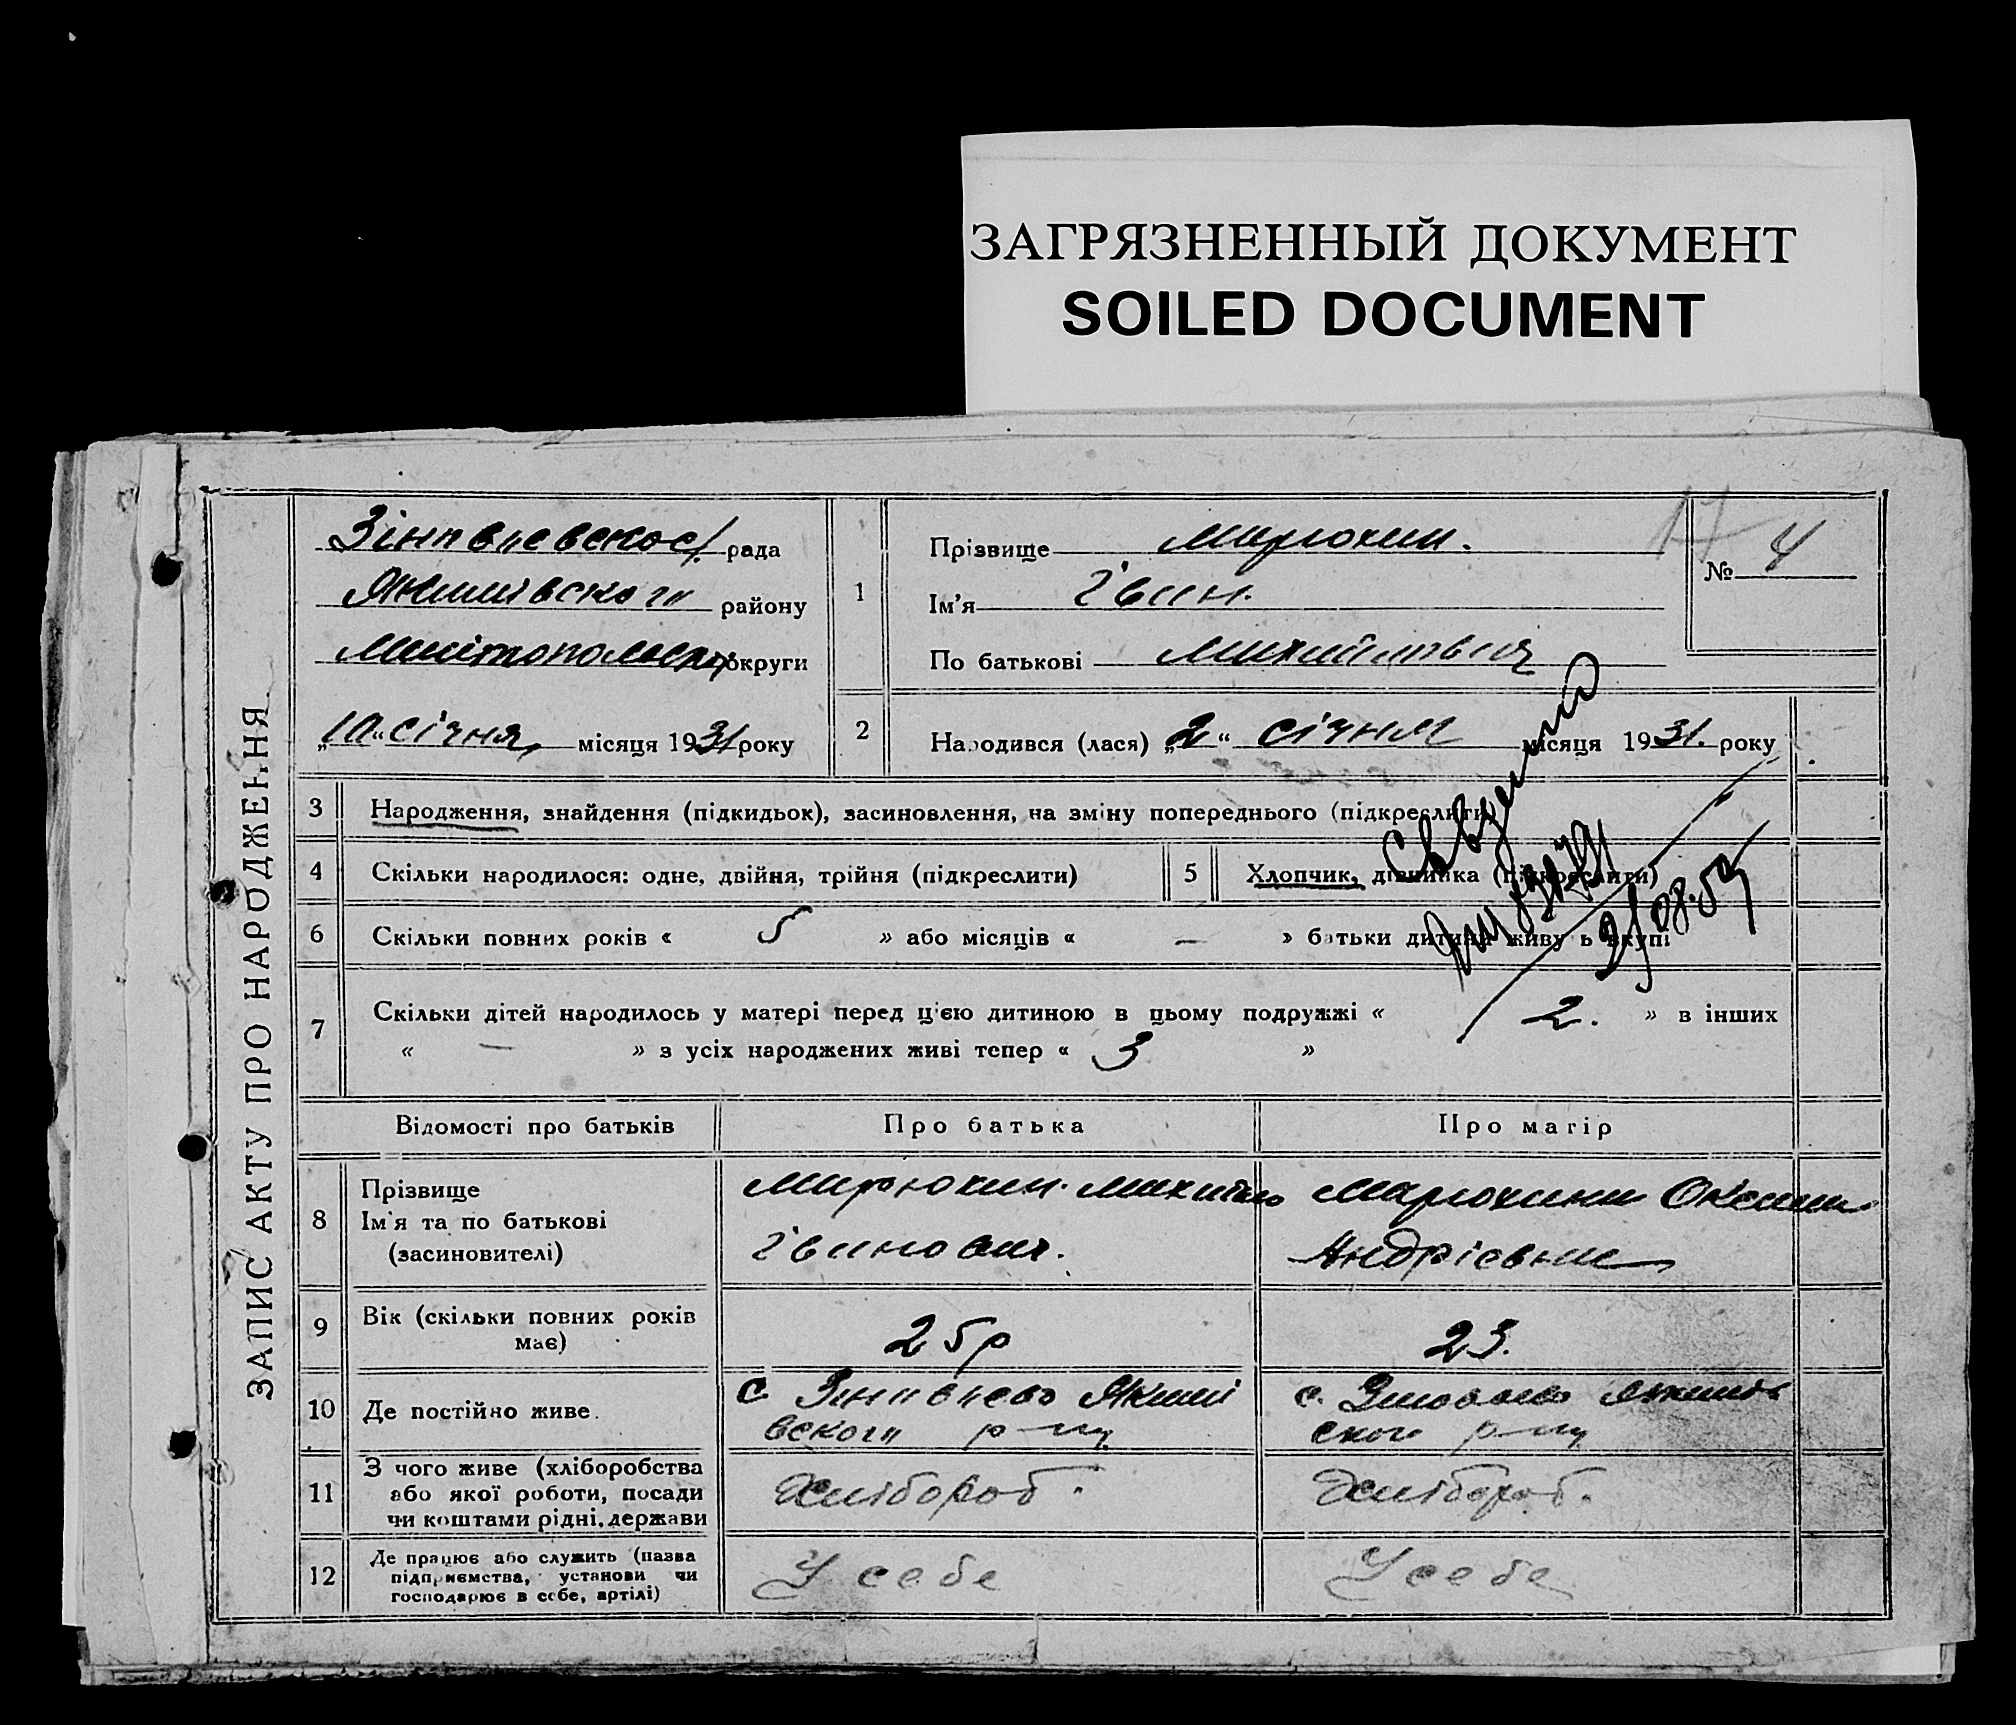 ЗАГРЯЗНЕННЫЙ ДОКУМЕНТ
SOILED DOCUMENT
ЗАПИС АКТУ ПРО НАРОДЖЕННЯ
рада
Якимівского району
округи
„10“ січня місяця 1931 року
1
Прізвище Марюхин.
Ім'я Іван.
По батькові Михайлович
№ 4
17
2
Народився (лася) „2“ січня місяця 1931. року
3 Народження, знайдення (підкидьок), засиновлення, на зміну попереднього (підкреслити)
4 Скільки народилося: одне, двійня, трійня (підкреслити)
5 Хлопчик, дівчинка (підкреслити)
6 Скільки повних років « 5 » або місяців « — » батьки дитини живуть вкупі
7 Скільки дітей народилось у матері перед цією дитиною в цьому подружжі « 2. » в інших
« — » з усіх народжених живі тепер « 3 »
Відомості про батьків
Про батька
Про матір
8 Прізвище
Ім'я та по батькові
(засиновителі)
Марюхин Михайло
Іванович.
Марюхина Оксана
Андрієвна
9 Вік (скільки повних років
має)
25 р
23.
10 Де постійно живе.
с. Якимі
вского р-ну
с. Якимів
ского р-ну
11 З чого живе (хліборобства
або якої роботи, посади
чи коштами рідні, держави
Хлібороб.
Хлібороб.
12 Де працює або служить (назва
підприємства, установи чи
господарює в себе, артілі)
У себе
У себе